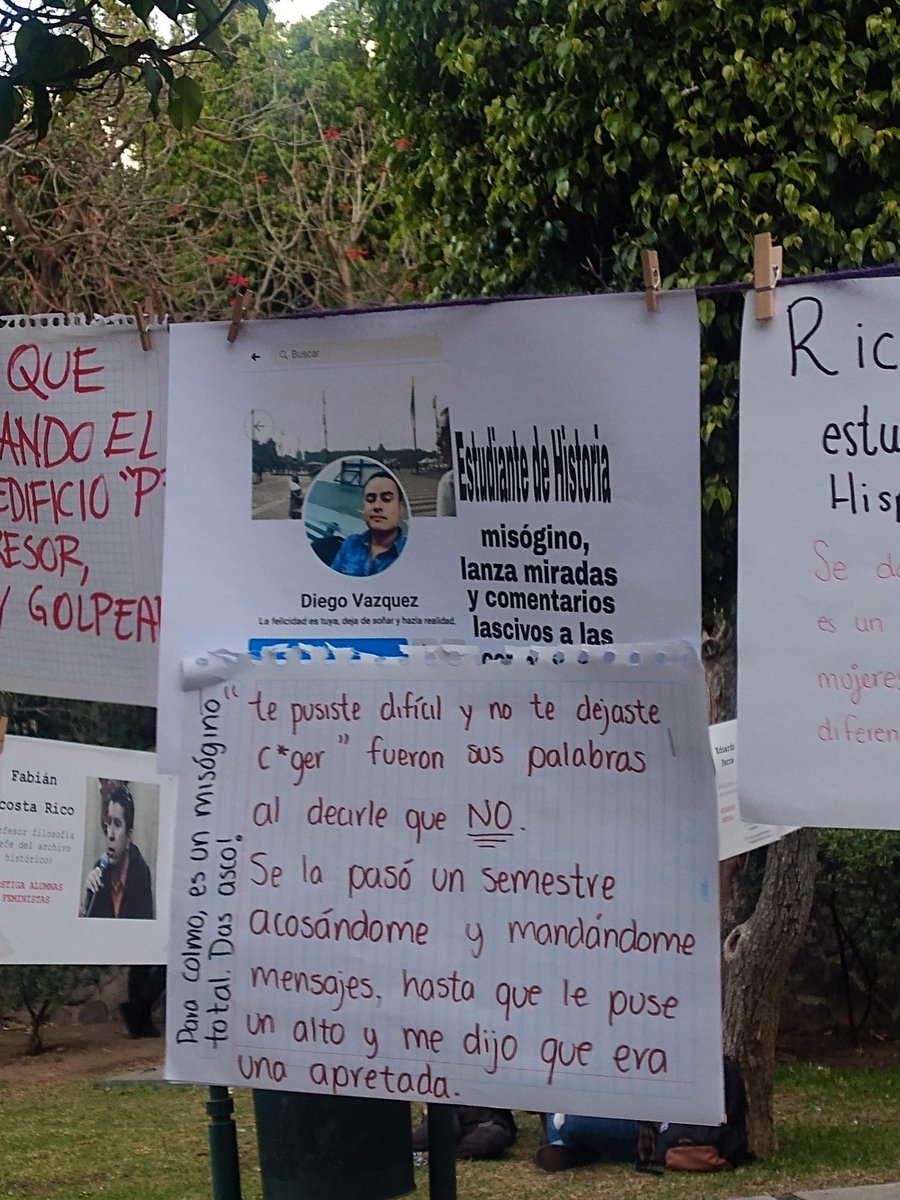 QUE
ANDO EL
EDIFICIO "P
ESOR,
Y GOLPEA
Buscar
Diego Vazquez
La felicidad es tuya, deja de soñar y hazla realidad.
Estudiante de Historia
misógino,
lanza miradas
y comentarios
lascivos a las
"te pusiste difícil y no te dejaste
c*ger" fueron sus palabras
al decirle que NO.
Se la pasó un semestre
acosándome y mandándome
mensajes, hasta que le puse
un alto y me dijo que era
una apretada.
Para colmo, es un misógino
total. Das asco!
Ric
estu
Hisp
Se d
es un
mujeres
diferen
Fabián
costa Rico
ofesor filosofía
efe del archivo
histórico)
STIGA ALUMNAS
FEMINISTAS